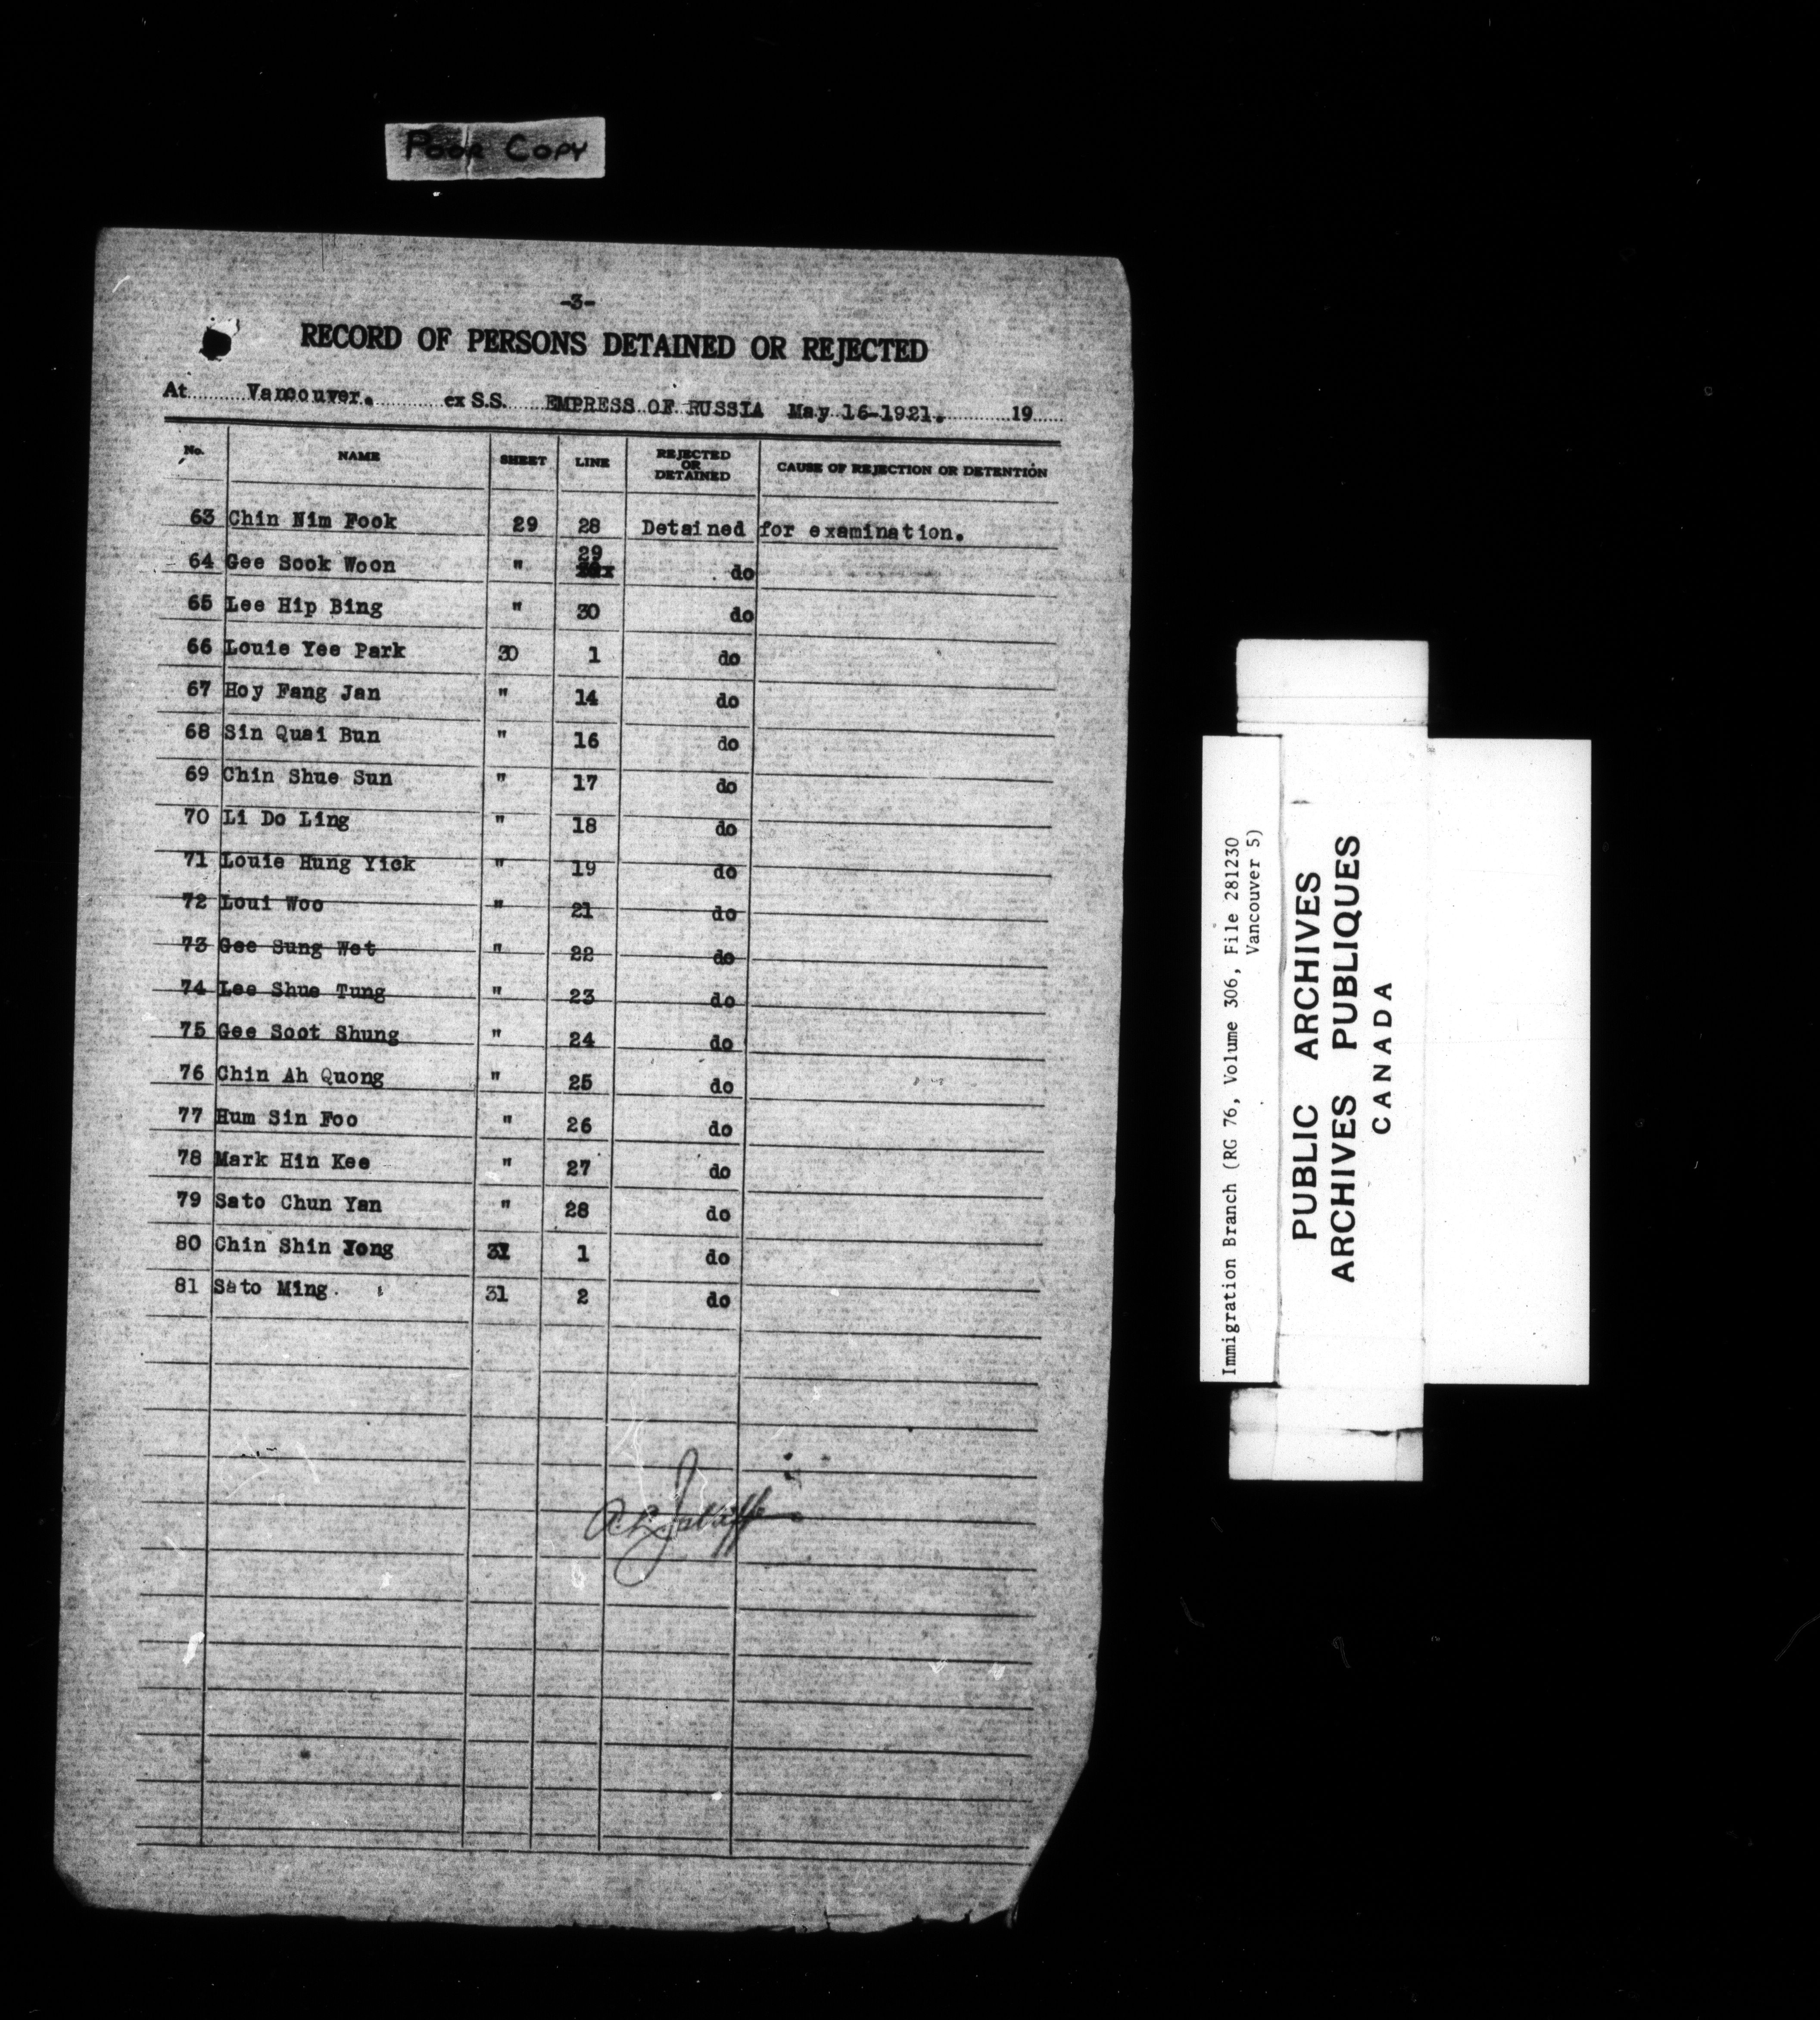 Poor Copy
-3-
RECORD OF PERSONS DETAINED OR REJECTED
At Vancouver. ex S.S. EMPRESS OF RUSSIA May 16-1921. 19
No. NAME SHEET LINE REJECTED OR DETAINED CAUSE OF REJECTION OR DETENTION
63 Chin Nim Fook 29 28 Detained for examination.
64 Gee Sook Woon " 29 do
65 Lee Hip Bing " 30 do
66 Louie Yee Park 30 1 do
67 Hoy Fang Jan " 14 do
68 Sin Quai Bun " 16 do
69 Chin Shue Sun " 17 do
70 Li Do Ling " 18 do
71 Louie Hung Yick " 19 do
72 Loui Woo " 21 do
73 Gee Sung Wet " 22 do
74 Lee Shue Tung " 23 do
75 Gee Soot Shung " 24 do
76 Chin Ah Quong " 25 do
77 Hum Sin Foo " 26 do
78 Mark Hin Kee " 27 do
79 Sato Chun Yan " 28 do
80 Chin Shin Yong 31 1 do
81 Sato Ming. 31 2 do
Immigration Branch (RG 76, Volume 306, File 281230
Vancouver 5)
PUBLIC ARCHIVES
ARCHIVES PUBLIQUES
CANADA